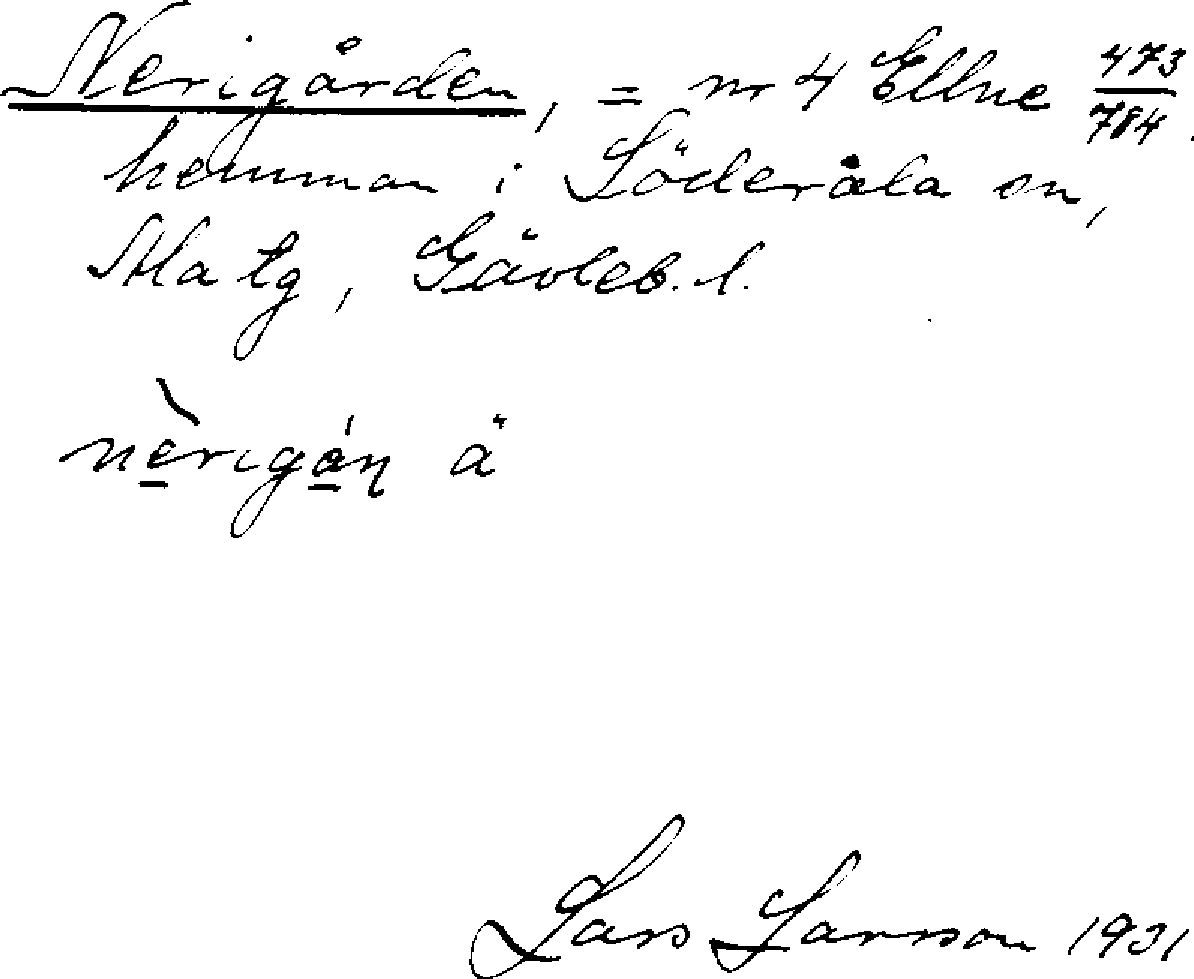 Nerigården, = nr 4 Ellne 473/784.
hemman i Söderåla sn,
Ala tg, Gävleb. l.
nèrigán ä
Lars Larsson 1931